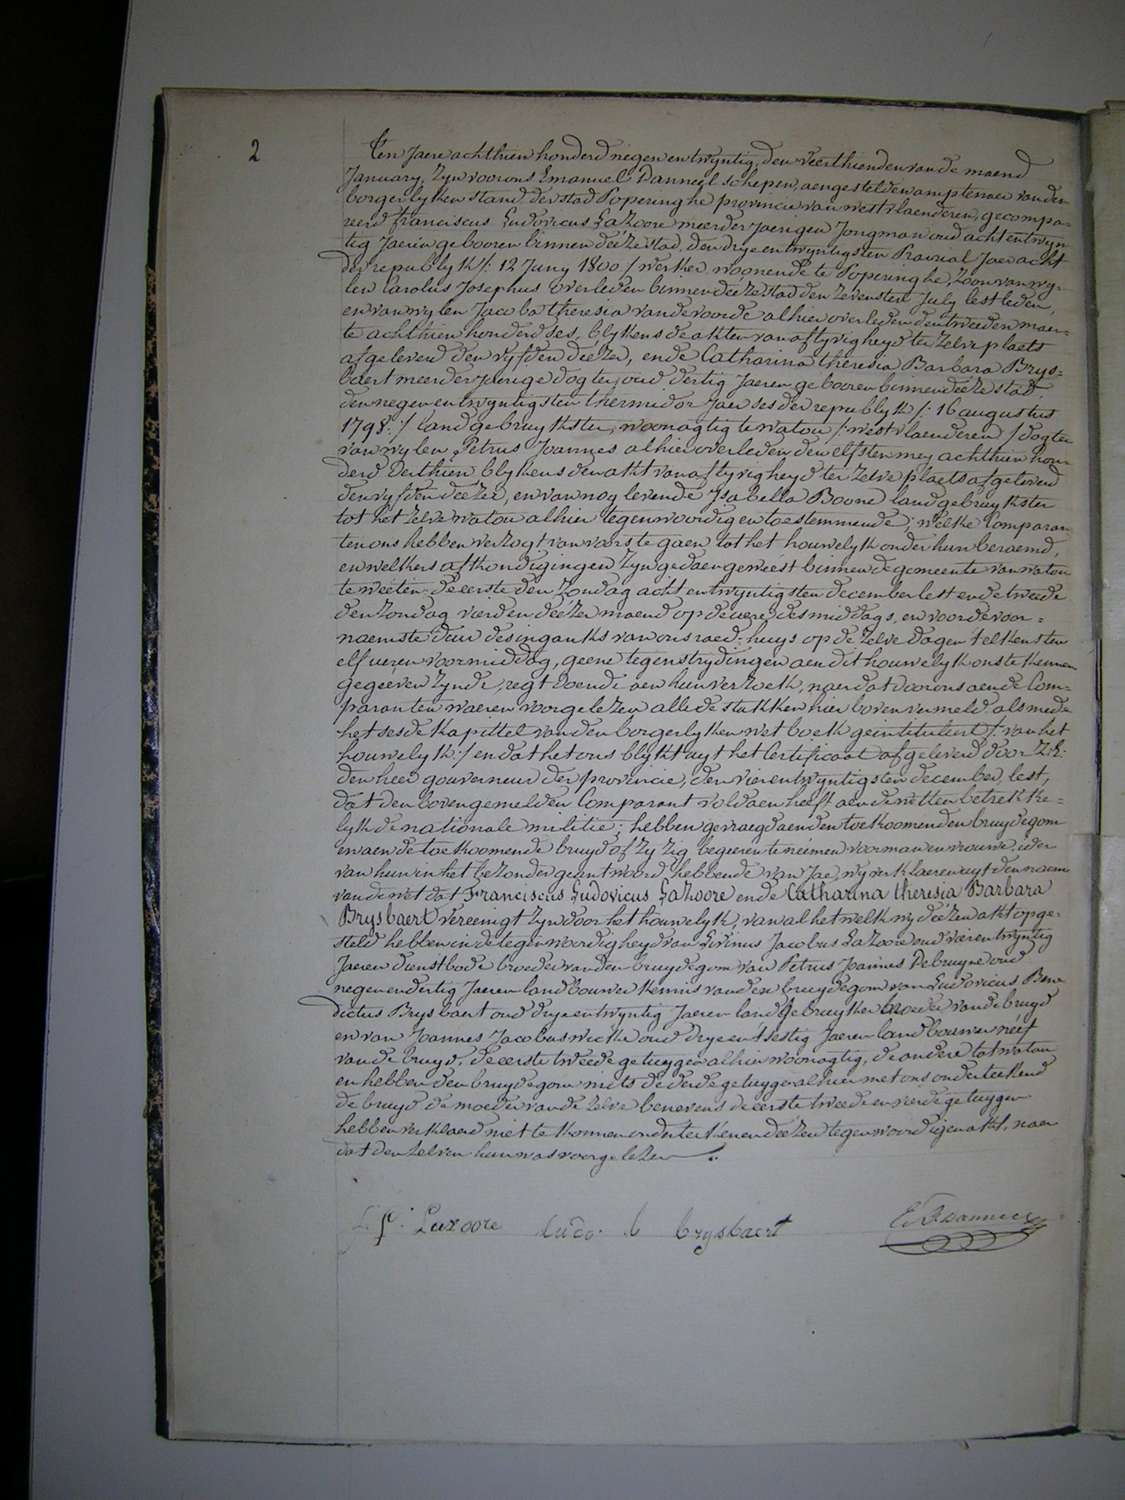 2
Ten Jaere achthien honderd negen en twyntig, den veerthienden van de maend
January, zyn voor ons Emanuel Danneel schepen, aengestelden amptenaer van den
borgerlyken stand, der stad Poperinghe provincie van westvlaenderen, gecompa-
reerd Franciscus Ludovicus LaZoore meerderjaerigen Jongman oud acht en twyn-
tig Jaeren gebooren binnen deéze stad, den drye en twyntigsten Prairial Jaer acht
der republyk /: 12 Juny 1800 / werker, woonende te Poperinghe, zoon van wy-
len Carolus Josephus overleden binnen deéze stad den zevensten July lestleden,
en van wylen Jacoba theresia vandevoorde alhier overleden den tweeden maer-
te achthien honderd ses, blykens de akten van aflyvigheyd ter zelve plaets
afgeleverd den vyfden deézer, ende Catharina theresia Barbara Brys-
baert meerderjaerige dogter, oud dertig Jaeren gebooren binnen deéze stad,
den negen en twyntigsten thermidor Jaer ses der republyk /: 16 augustus
1798:/ landgebruykster, woonagtig te watou /: westvlaenderen / dogter
van wylen Petrus Joannes alhier overleden den elfsten mey achthien hon-
derd derthien blykens den akt van aflyvigheyd ter zelve plaets afgeleverd
den vyfden deézer, en van nog levende Isabella Boone landgebruykster
tot het zelve watou alhier tegenwoordig en toestemmende; welke Comparan-
ten ons hebben verzogt van voorts te gaen tot het houwelyk onder hun beraemd,
en welkers afkondigingen zyn gedaen geweest binnen de gemeente van watou
te weéten de eerste den zondag acht en twyntigsten december lest en de tweede
den zondag vierden deézer maend op de uere des middags, en voor de voor-
naemste deur des ingangks van ons raed-huys op de zelve dagen telkensten
elf ueren voormiddag, geene tegenstrydingen aen dit houwelyk ons te kennen
gegeéven zynde, regt doende aen hun verzoek, naer dat door ons aen de Com-
paranten waeren voorgelezen alle de stukken hier boven vermeld als mede
het sesde kapittel van den borgerlyken wetboek geintituleert /: van het
houwelyk:/ en dat het ons blykt uyt het Certificaat afgeleverd door Z:E:
den heer gouverneur der provincie, den vier en twyntigsten december, lest,
dat den bovengemelden Comparant voldaen heeft aen de wetten betrekke-
lyk de nationale militie; hebben gevraegd aen den toekoomenden bruydegom
en aen de toekoomende bruyd of zy zig begeeren te neimen voor man en vrouwe, ider
van hun en het bezonder geantwoord hebbende van Jae, wy verklaeren uyt den naem
van de wet dat Franciscus Ludovicus LaZoore ende Catharina theresia Barbara
Brysbaert vereenigt zyn door het houwelyk, van al het welk wy deézen akt opge-
steld hebben in de tegenwoordigheyd van Livinus Jacobus LaZoore oud vier en twyntig
Jaeren dienstbode broeder van den bruydegom van Petrus Joannes Debruyne oud
negen en dertig Jaeren landbouwer kennis van den bruydegom van Ludovicus Bene-
dictus Brysbaert oud drye en twyntig Jaeren landgebruyker broeder van de bruyd
en van Joannes Jacobus wicke oud drye en tsestig Jaeren landbouwer néef
van de bruyd, de eerste tweede getuygen alhier woonagtig, de andere tot watou
en hebben den bruydegom mits de derde getuygen alhier met ons onderteekend
de bruyd de moeder van de zelve benevens de eerste tweede en vierde getuygen
hebben verklaerd niet te konnen onderteekenen deézen tegenwoordigen akt, naer
dat den zelven hun was voorgelezen
Lazoore ludo. b brysbaert E. Danneel